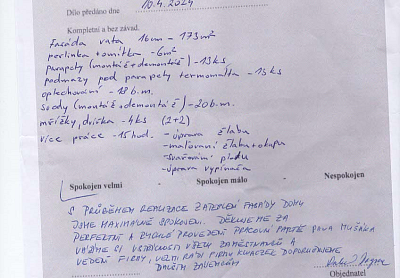 Dílo předáno dne 10.4.2024
Kompletní a bez závad.
Fasáda vata 16cm - 173m²
perlinka + omítka - 6m²
parapety (montáž+demontáž) - 13ks
podmazy pod parapety termomalta - 13ks
oplechování - 18b.m.
svody (montáž+demontáž) - 20b.m.
mřížky, dvířka - 4ks (2+2)
více práce - 15hod. - úprava žlabu
- malování žlabu+okapu
- svařování plotu
- úprava vypínače
Spokojen velmi - Spokojen málo - Nespokojen
S PRŮBĚHEM REALIZACE ZATEPLENÍ FASÁDY DOMU
JSME MAXIMÁLNĚ SPOKOJENI. DĚKUJEME ZA
PERFEKTNÍ A RYCHLÉ PROVEDENÍ PRACOVNÍ PARTĚ PANA
VÁŽÍME SI VSTŘÍCNOSTI VŠECH ZAMĚSTNANCŮ A
VEDENÍ FIRMY, VELMI RÁDI FIRMU DOPORUČÍME
DALŠÍM ZÁJEMCŮM
Objednatel